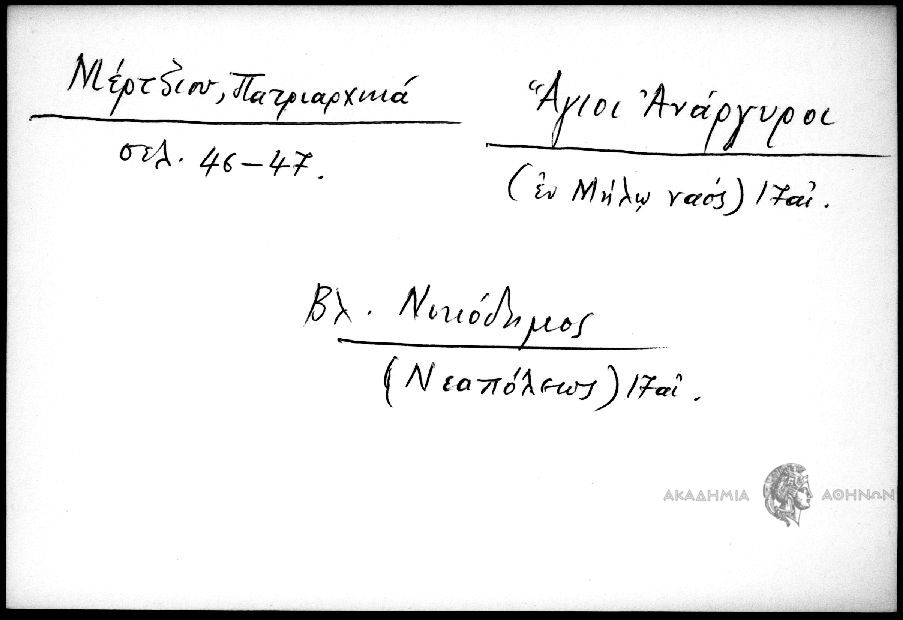 Μέρτζιου, Πατριαρχικά
σελ. 46-47.
Ἅγιοι Ἀνάργυροι
(ἐν Μήλῳ ναός) 17αἰ.
Βλ. Νικόδημος
(Νεαπόλεως) 17αἰ.
ΑΚΑΔΗΜΙΑ ΑΘΗΝΩΝ